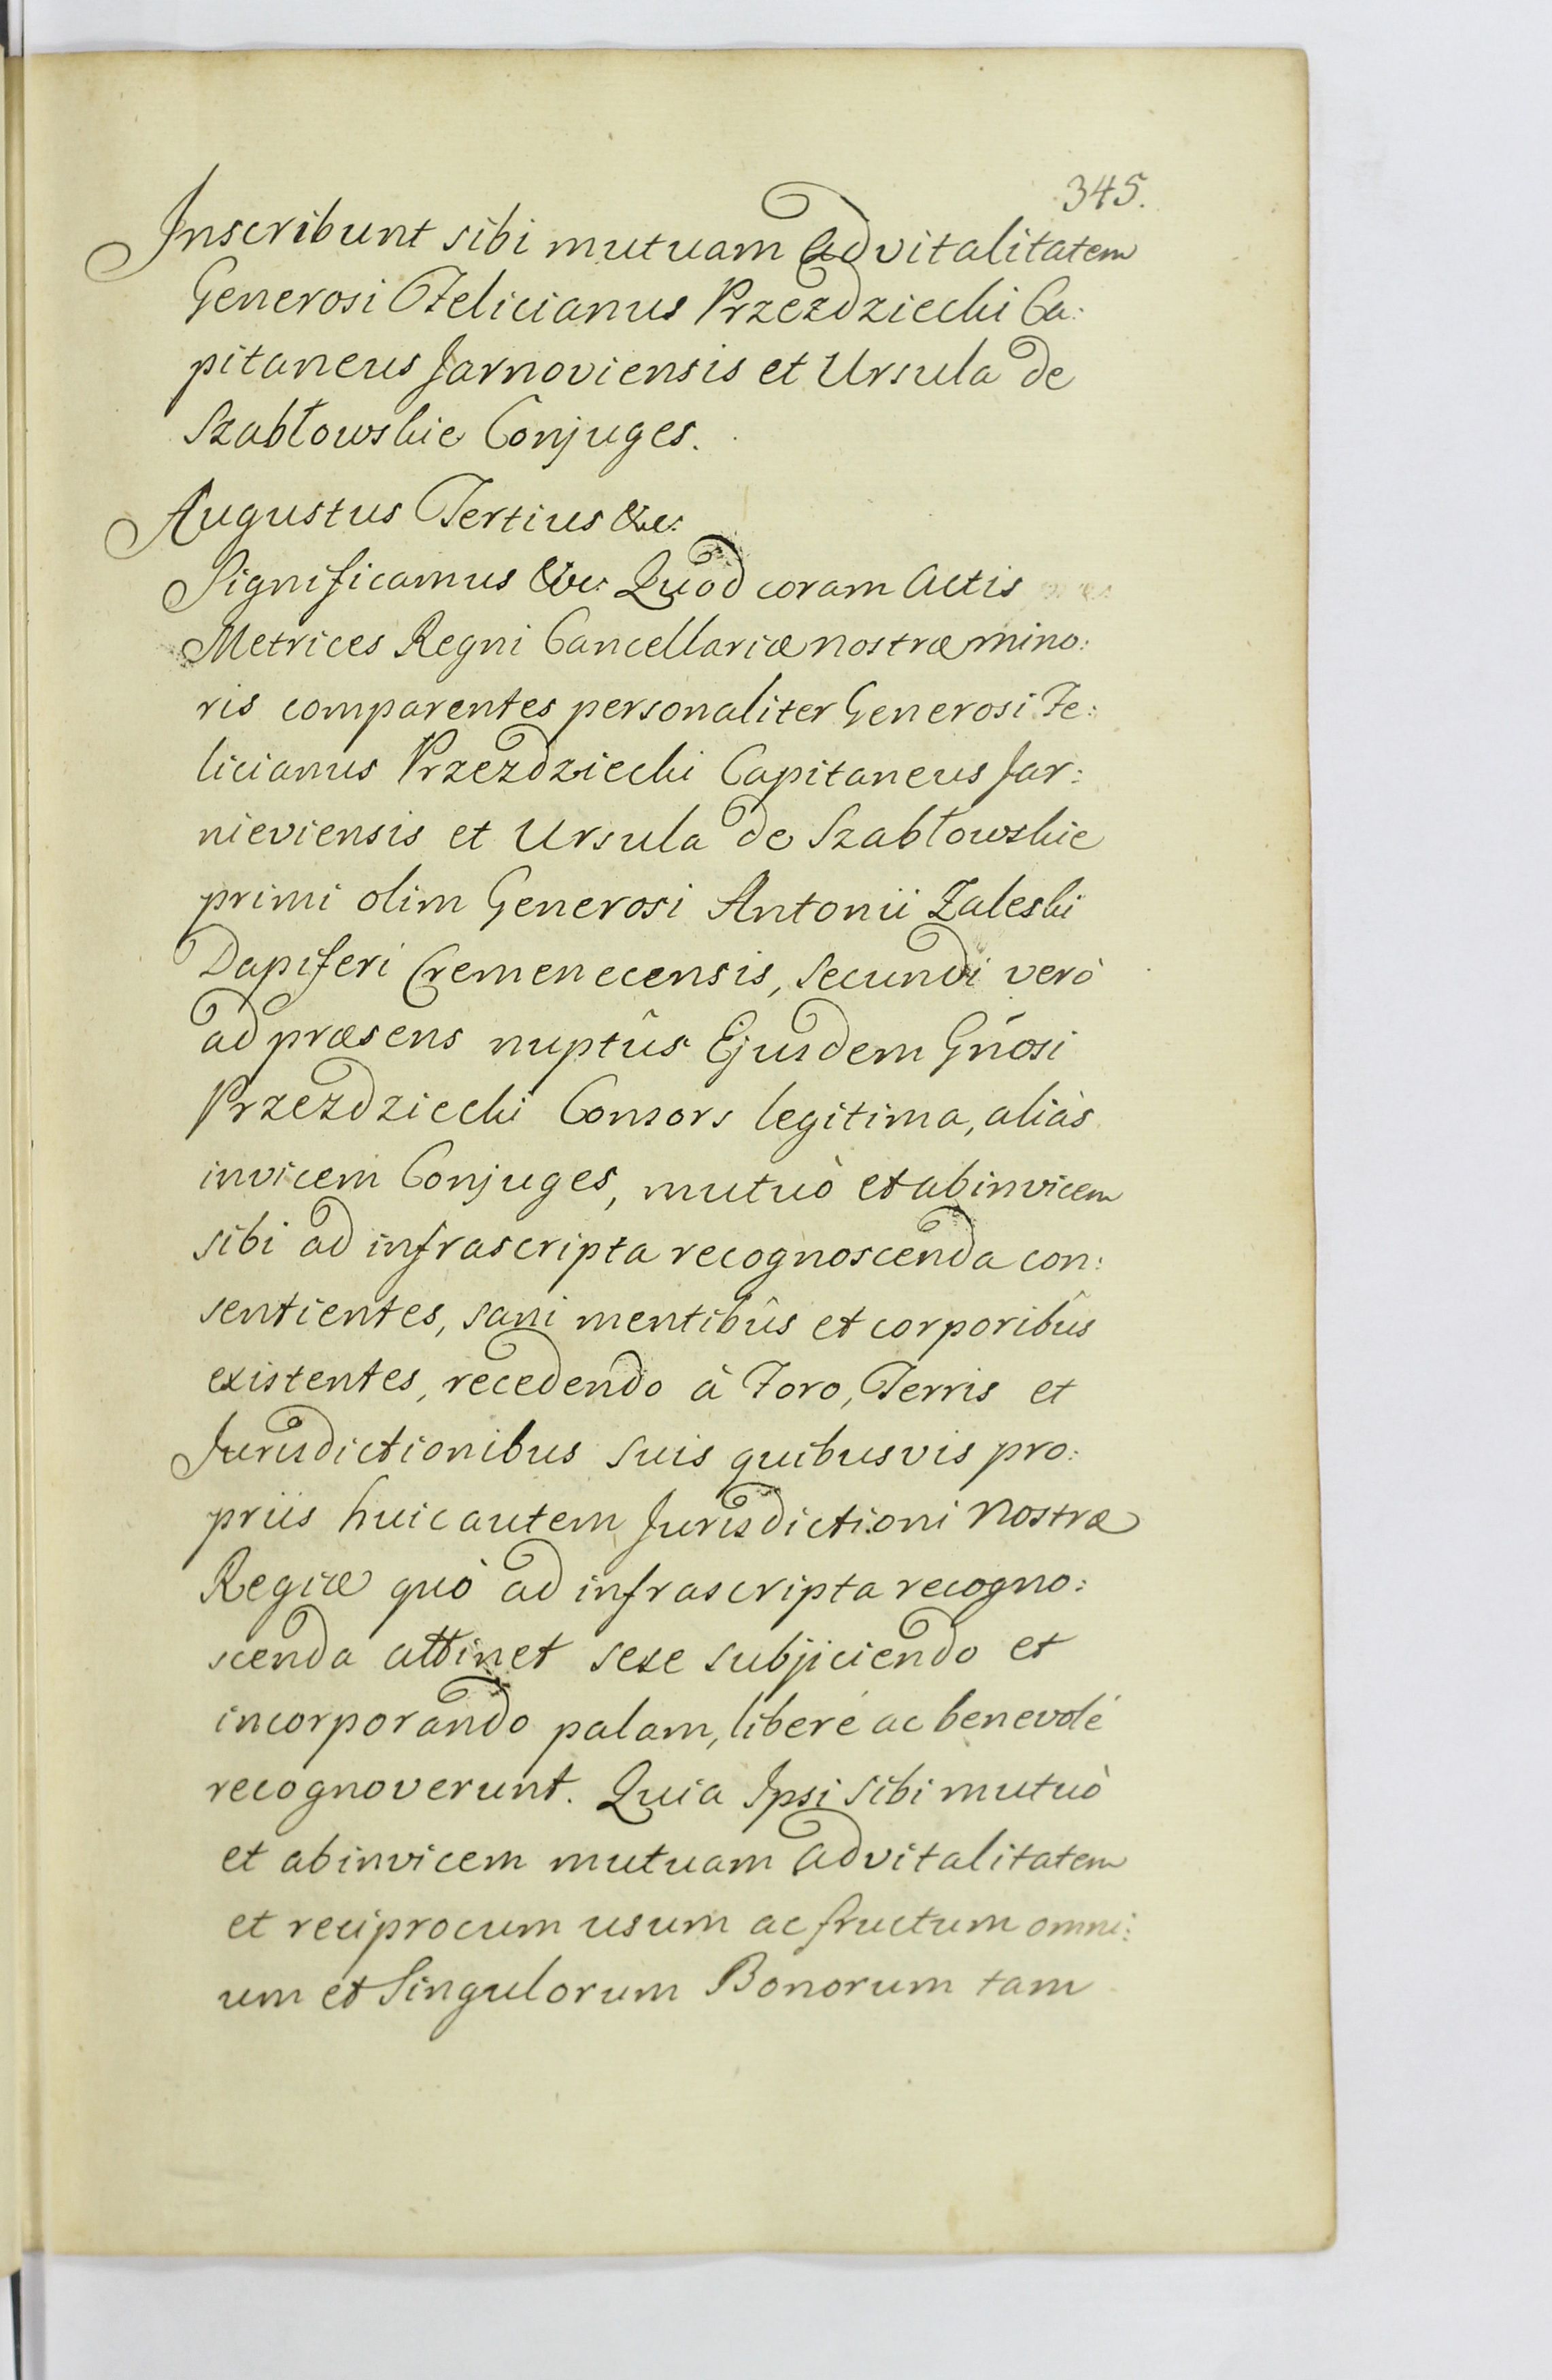 345.
Inscribunt sibi mutuam advitalitatem
Generosi Felicianus Przezdziecki Ca:
pitaneus Jarnoviensis et Ursula de
Szabłowskie Conjuges.
Augustus Tertius &c:
Significamus &c: Quod coram Actis
Metrices Regni Cancellariæ nostræ mino:
ris comparentes personaliter Generosi Fe:
licianus Przezdziecki Capitaneus Jar:
nieviensis et Ursula de Szabłowskie
primi olim Generosi Antonii Zaleski
Dapiferi Cremenecensis, Secundi verò
ad præsens nuptûs Ejusdem Gnosi
Przezdziecki Consors legitima, aliàs
invicem Conjuges, mutuò et abinvicem
sibi ad infrascripta recognoscenda con:
sentientes, sani mentibûs et corporibûs
existentes, recedendo à Foro, Terris et
Jurisdictionibus suis quibusvis pro:
priis huic autem Jurisdictioni Nostræ
Regiæ quò ad infrascripta recogno:
scenda attinet sese subjiciendo et
incorporando palam, liberé ac benevolé
recognoverunt. Quia Ipsi sibi mutuò
et abinvicem mutuam advitalitatem
et reciprocum usum ac fructum omni:
um et Singulorum Bonorum tam